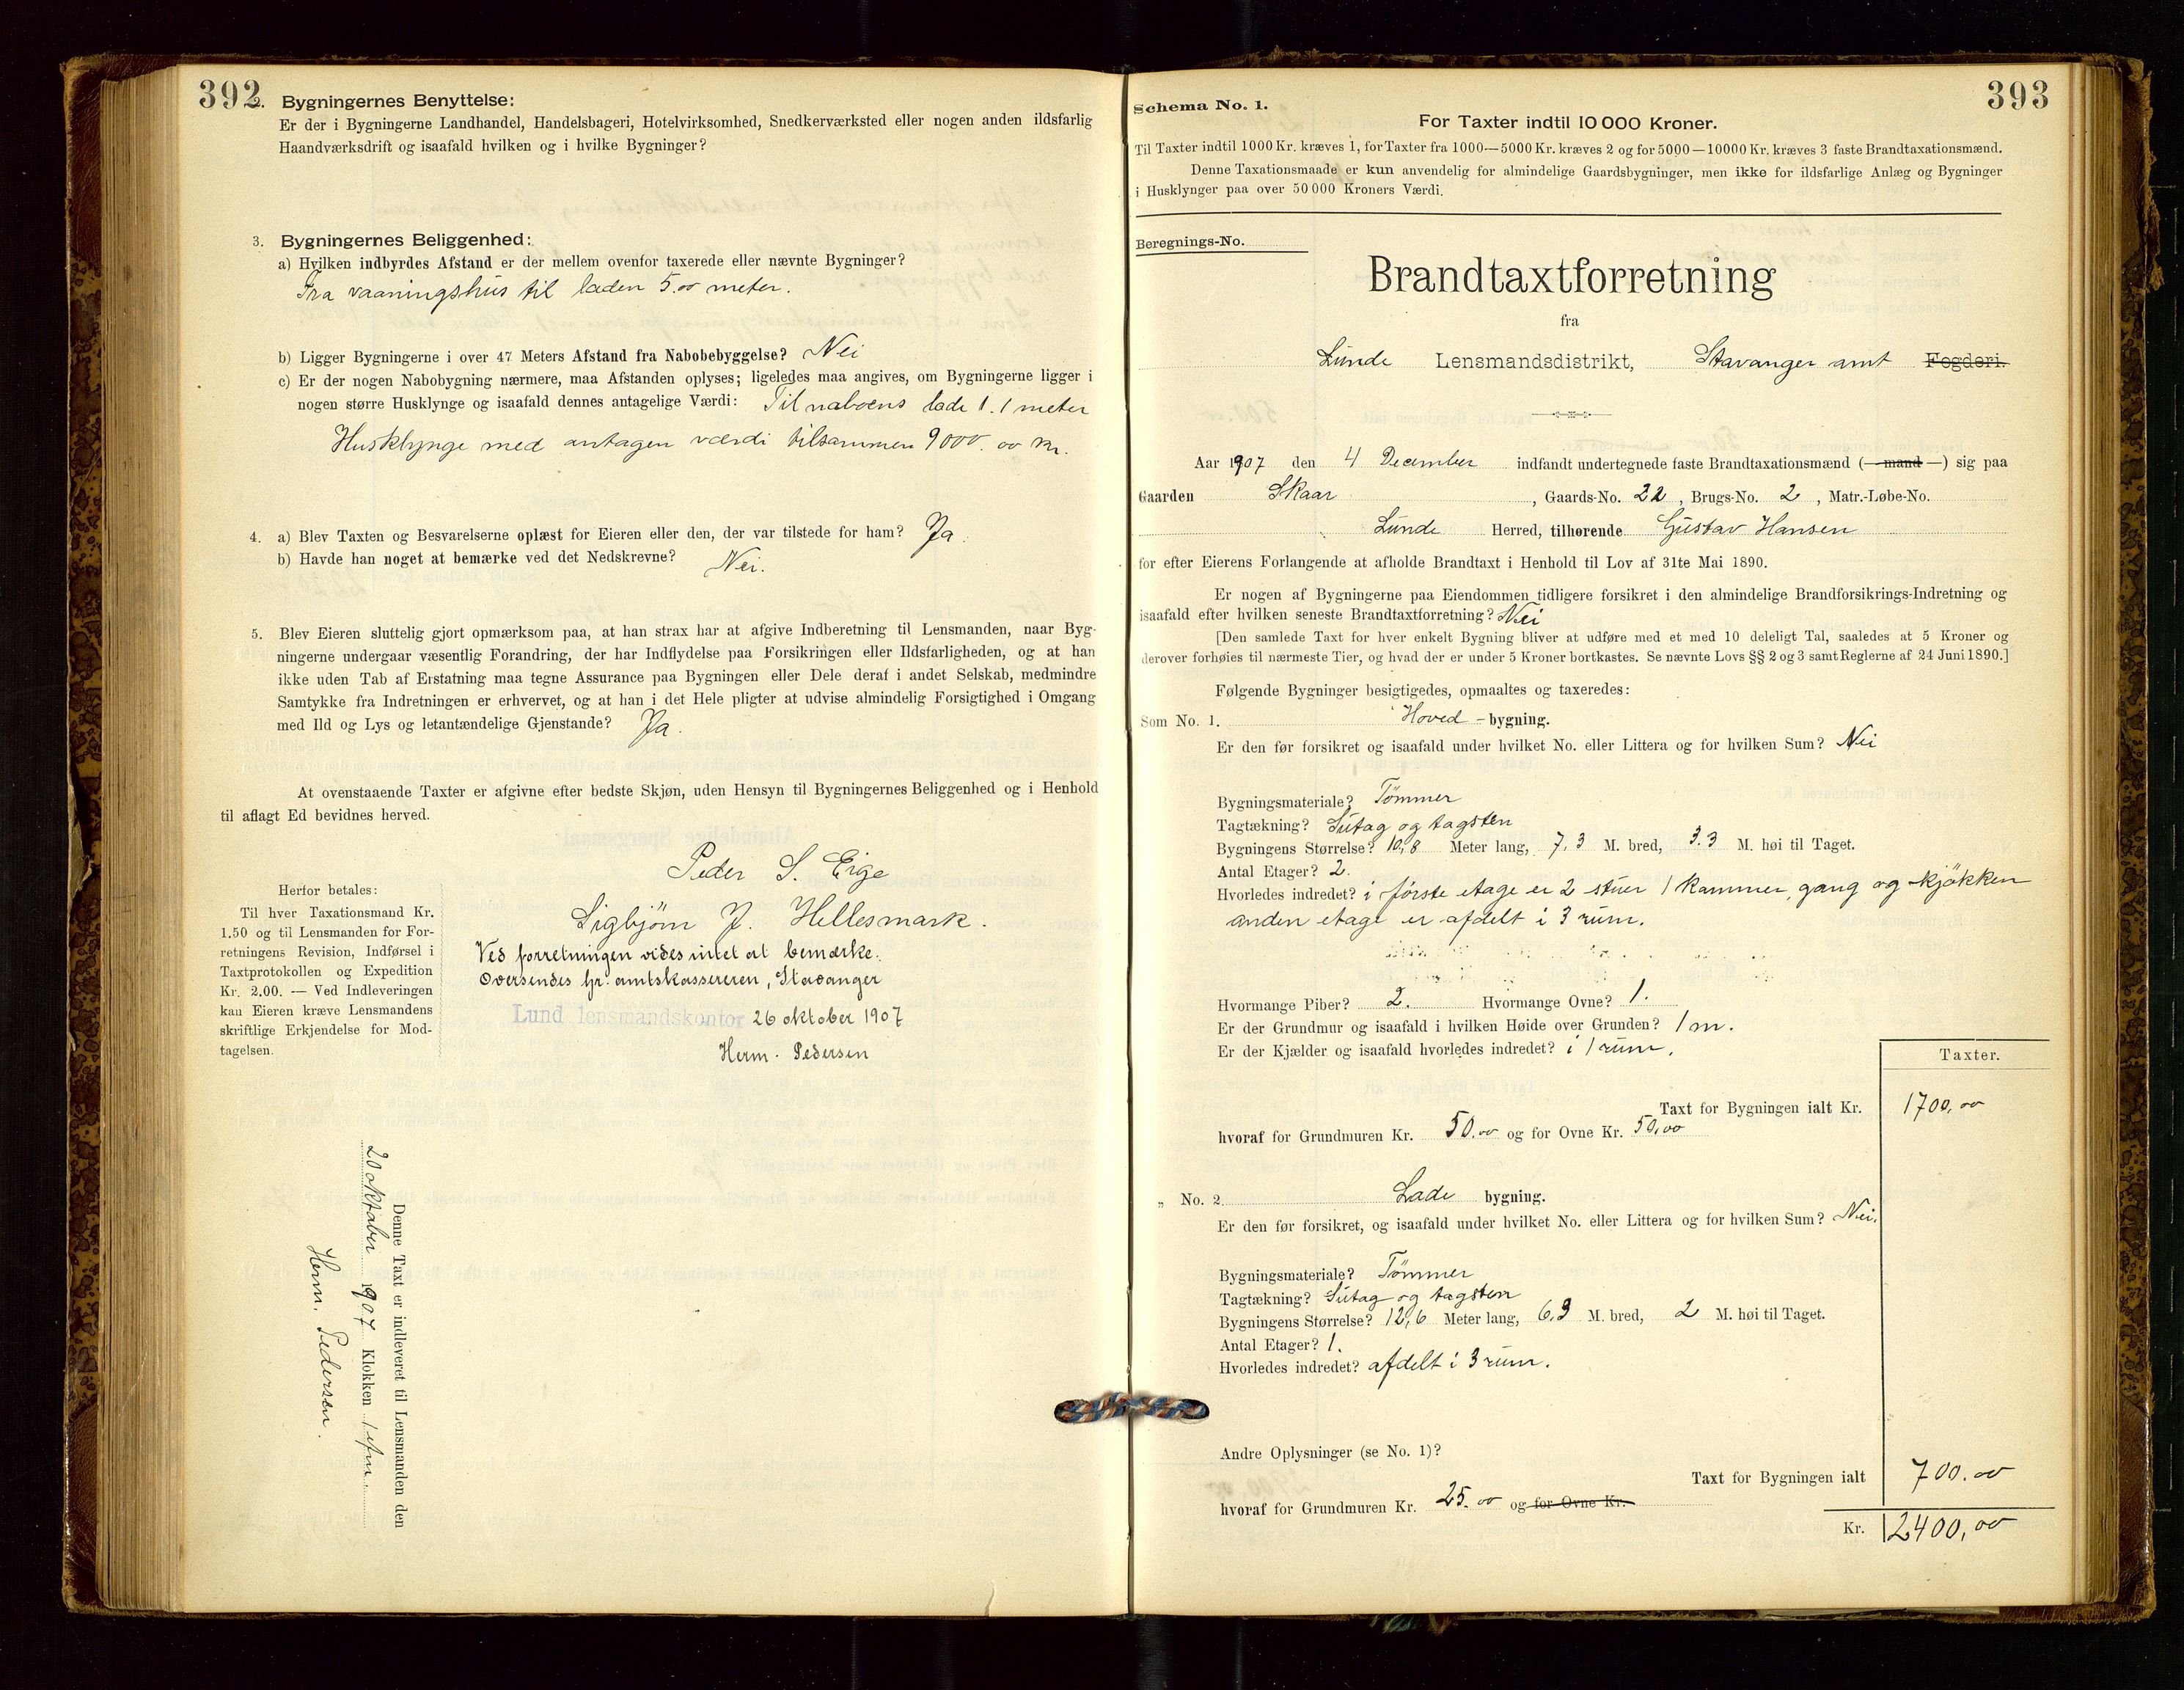 392
2. Bygningernes Benyttelse:
Er der i Bygningerne Landhandel, Handelsbageri, Hotelvirksomhed, Snedkerværksted eller nogen anden ildsfarlig
Haandværksdrift og isaafald hvilken og i hvilke Bygninger?
3. Bygningernes Beliggenhed:
a) Hvilken indbyrdes Afstand er der mellem ovenfor taxerede eller nævnte Bygninger?
Fra vaaningshus til laden 5.00 meter.
b) Ligger Bygningerne i over 47 Meters Afstand fra Nabobebyggelse? Nei
c) Er der nogen Nabobygning nærmere, maa Afstanden oplyses; ligeledes maa angives, om Bygningerne ligger i
nogen større Husklynge og isaafald dennes antagelige Værdi: Til naboens lade 1.1 meter
Husklynge med antagen værdi tilsammen 9000.00 kr.
4. a) Blev Taxten og Besvarelserne oplæst for Eieren eller den, der var tilstede for ham? Ja.
b) Havde han noget at bemærke ved det Nedskrevne? Nei.
5. Blev Eieren sluttelig gjort opmærksom paa, at han strax har at afgive Indberetning til Lensmanden, naar Byg-
ningerne undergaar væsentlig Forandring, der har Indflydelse paa Forsikringen eller Ildsfarligheden, og at han
ikke uden Tab af Erstatning maa tegne Assurance paa Bygningen eller Dele deraf i andet Selskab, medmindre
Samtykke fra Indretningen er erhvervet, og at han i det Hele pligter at udvise almindelig Forsigtighed i Omgang
med Ild og Lys og letantændelige Gjenstande? Ja.
At ovenstaaende Taxter er afgivne efter bedste Skjøn, uden Hensyn til Bygningernes Beliggenhed og i Henhold
til aflagt Ed bevidnes herved.
Peder S. Eige
Sigbjörn J. Hellesmark.
Ved forretningen vides intet at bemærke.
Oversendes hr. amtskassereren, Stavanger
Lund lensmandskontor 26 oktober 1907
Herm. Pedersen
Herfor betales:
Til hver Taxationsmand Kr.
1,50 og til Lensmanden for For-
retningens Revision, Indførsel i
Taxtprotokollen og Expedition
Kr. 2.00. — Ved Indleveringen
kan Eieren kræve Lensmandens
skriftlige Erkjendelse for Mod-
tagelsen.
Denne Taxt er indleveret til Lensmanden den
20 oktober 1907 Klokken 1 efm.
Herm. Pedersen.
393
Schema No. 1.
For Taxter indtil 10 000 Kroner.
Til Taxter indtil 1000 Kr. kræves 1, for Taxter fra 1000—5000 Kr. kræves 2 og for 5000—10000 Kr. kræves 3 faste Brandtaxationsmænd.
Denne Taxationsmaade er kun anvendelig for almindelige Gaardsbygninger, men ikke for ildsfarlige Anlæg og Bygninger
i Husklynger paa over 50 000 Kroners Værdi.
Beregnings-No.
Brandtaxtforretning
fra
Lunde Lensmandsdistrikt, Stavanger amt Fogderi.
Aar 1907 den 4 December indfandt undertegnede faste Brandtaxationsmænd (— mand —) sig paa
Gaarden Skaar, Gaards-No. 22, Brugs-No. 2, Matr.-Løbe-No.
Lunde Herred, tilhørende Gustav Hansen
for efter Eierens Forlangende at afholde Brandtaxt i Henhold til Lov af 31te Mai 1890.
Er nogen af Bygningerne paa Eiendommen tidligere forsikret i den almindelige Brandforsikrings-Indretning og
isaafald efter hvilken seneste Brandtaxtforretning? Nei
[Den samlede Taxt for hver enkelt Bygning bliver at udføre med et med 10 deleligt Tal, saaledes at 5 Kroner og
derover forhøies til nærmeste Tier, og hvad der er under 5 Kroner bortkastes. Se nævnte Lovs §§ 2 og 3 samt Reglerne af 24 Juni 1890.]
Følgende Bygninger besigtigedes, opmaaltes og taxeredes:
Som No. 1. Hoved - bygning.
Er den før forsikret og isaafald under hvilket No. eller Littera og for hvilken Sum? Nei
Bygningsmateriale? Tömmer
Tagtækning? Sutag og tagsten
Bygningens Størrelse? 10,8 Meter lang, 7,3 M. bred, 3.3 M. høi til Taget.
Antal Etager? 2.
Hvorledes indredet? i förste etage er 2 stuer 1 kammer, gang og kjökken
anden etage er afdelt i 3 rum.
Hvormange Piber? 2. Hvormange Ovne? 1.
Er der Grundmur og isaafald i hvilken Høide over Grunden? 1 m.
Er der Kjælder og isaafald hvorledes indredet? i 1 rum.
Taxter.
Taxt for Bygningen ialt Kr. 1700,00
hvoraf for Grundmuren Kr. 50.00 og for Ovne Kr. 50,00
„ No. 2 Lade bygning.
Er den før forsikret, og isaafald under hvilket No. eller Littera og for hvilken Sum? Nei.
Bygningsmateriale? Tömmer
Tagtækning? Sutag og tagsten
Bygningens Størrelse? 12,6 Meter lang, 6,3 M. bred, 2 M. høi til Taget.
Antal Etager? 1.
Hvorledes indredet? afdelt i 3 rum.
Andre Oplysninger (se No. 1)?
Taxt for Bygningen ialt 700.00
hvoraf for Grundmuren Kr. 25.00 og for Ovne Kr.
Kr. 2400,00